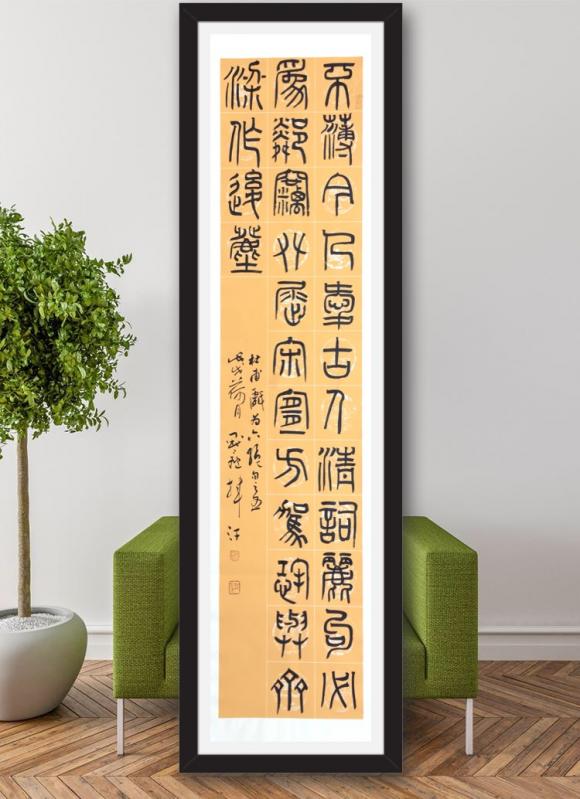 不薄今人愛古人清詞麗句必
為鄰竊攀屈宋宜方駕恐與齊
梁作後塵
杜甫戲為六絕句之五
戊戌荷月 揮汗